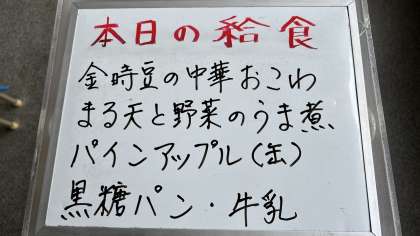 本日の給食
金時豆の中華おこわ
まる天と野菜のうま煮
パインアップル(缶)
黒糖パン・牛乳